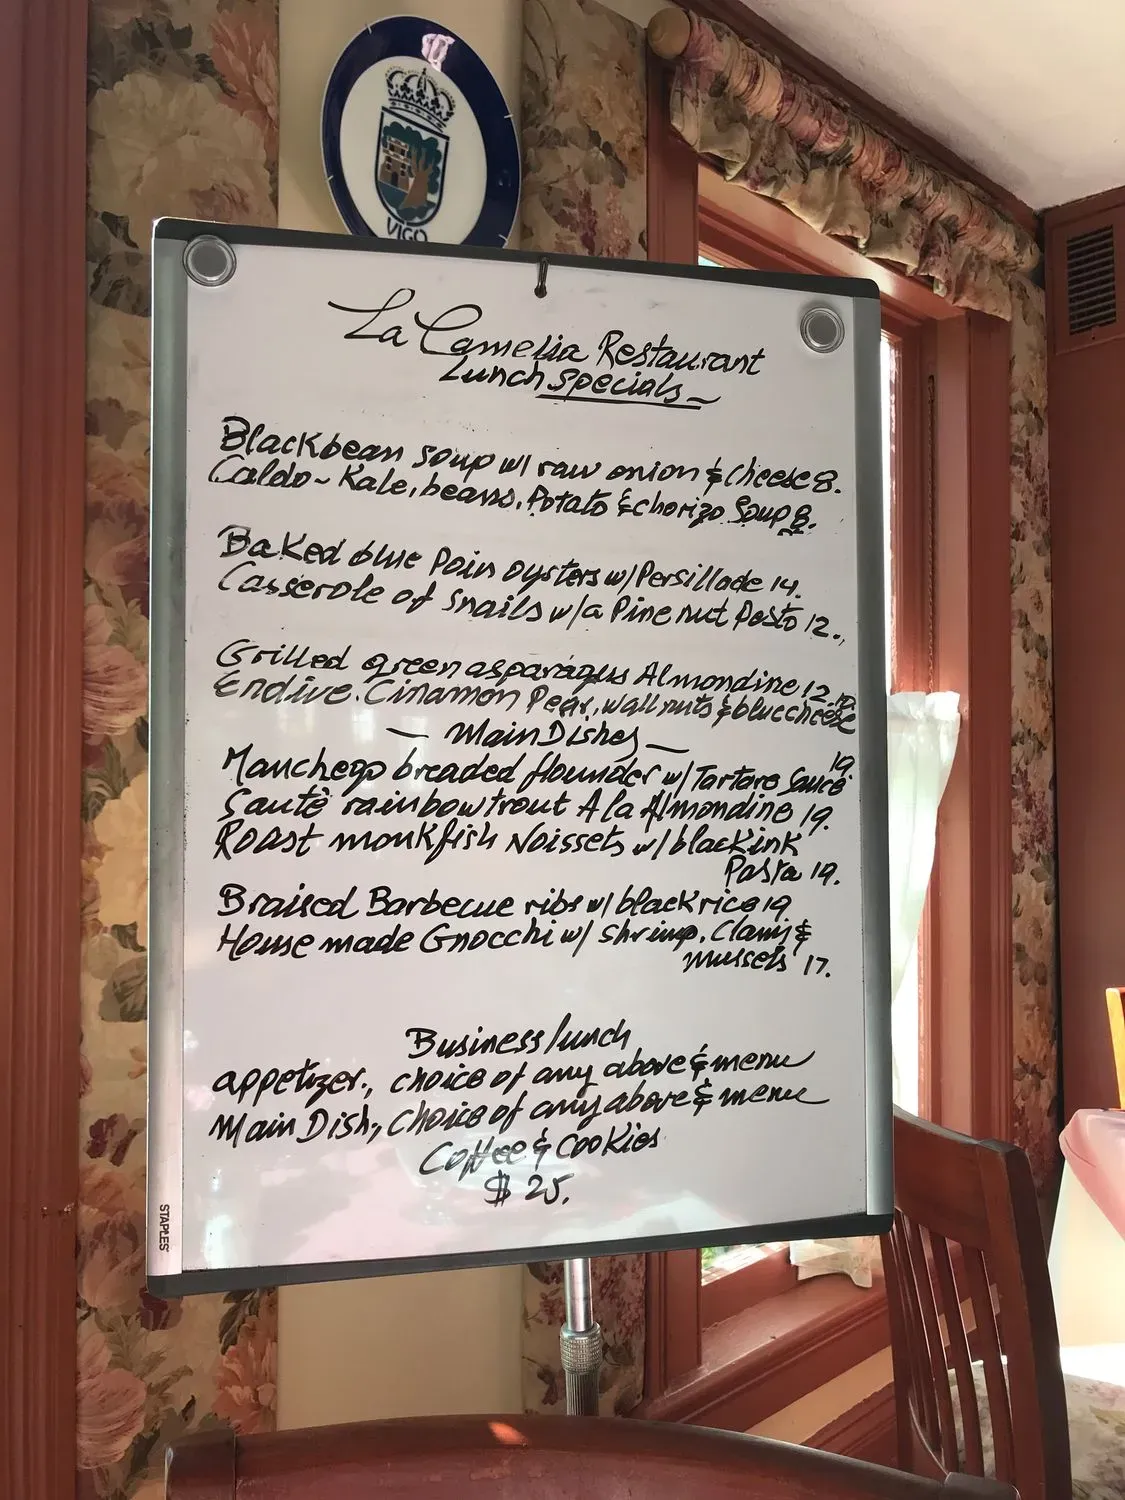 VIGO
La Camelia Restaurant
Lunch Specials
Blackbean soup w/ raw onion & cheese 8.
Caldo ~ Kale, beans, Potato & chorizo Soup 8.
Baked blue Poin oysters w/ Persillade 14.
Casserole of Snails w/a Pine nut Pesto 12.
Grilled green asparagus Almondine 12.
Endive. Cinamon Pear, wallnuts & bluecheese
— Main Dishes —
Manchego breaded flounder w/ Tartare Sauce 19
Sauté rainbow trout A la Almondine 19.
Roast monkfish Noissets w/ black ink
Pasta 19.
Braised Barbecue ribs w/ black rice 19
House made Gnocchi w/ shrimp, Clams &
mussels 17.
Business lunch
appetizer., choice of any above & menu
Main Dish, choice of any above & menu
Coffee & cookies
$ 25.
STAPLES